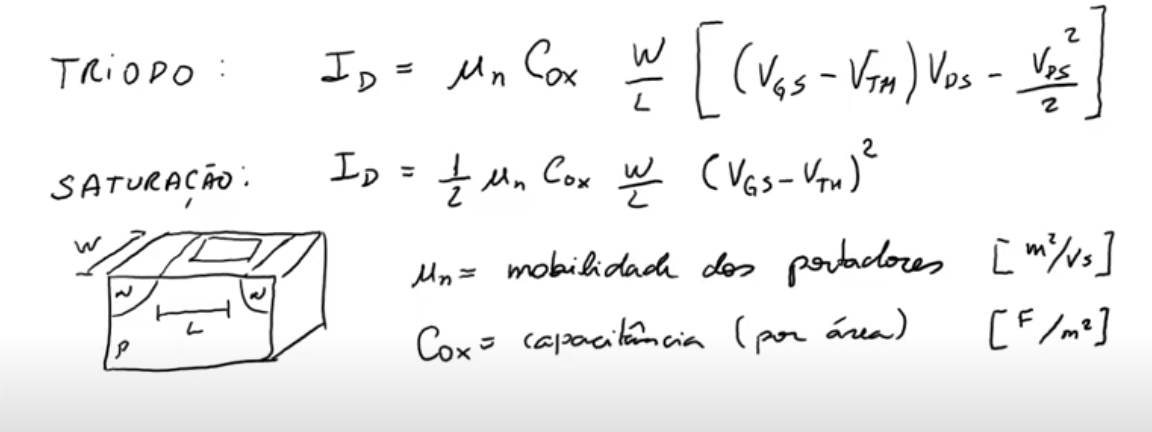 TRIODO: I_D = μ_n C_ox W/L [(V_GS - V_TH) V_DS - V_DS²/2]
SATURAÇÃO: I_D = 1/2 μ_n C_ox W/L (V_GS - V_TH)²
W
N N
L
P
μ_n = mobilidade dos portadores [m²/Vs]
C_ox = capacitância (por área) [F/m²]